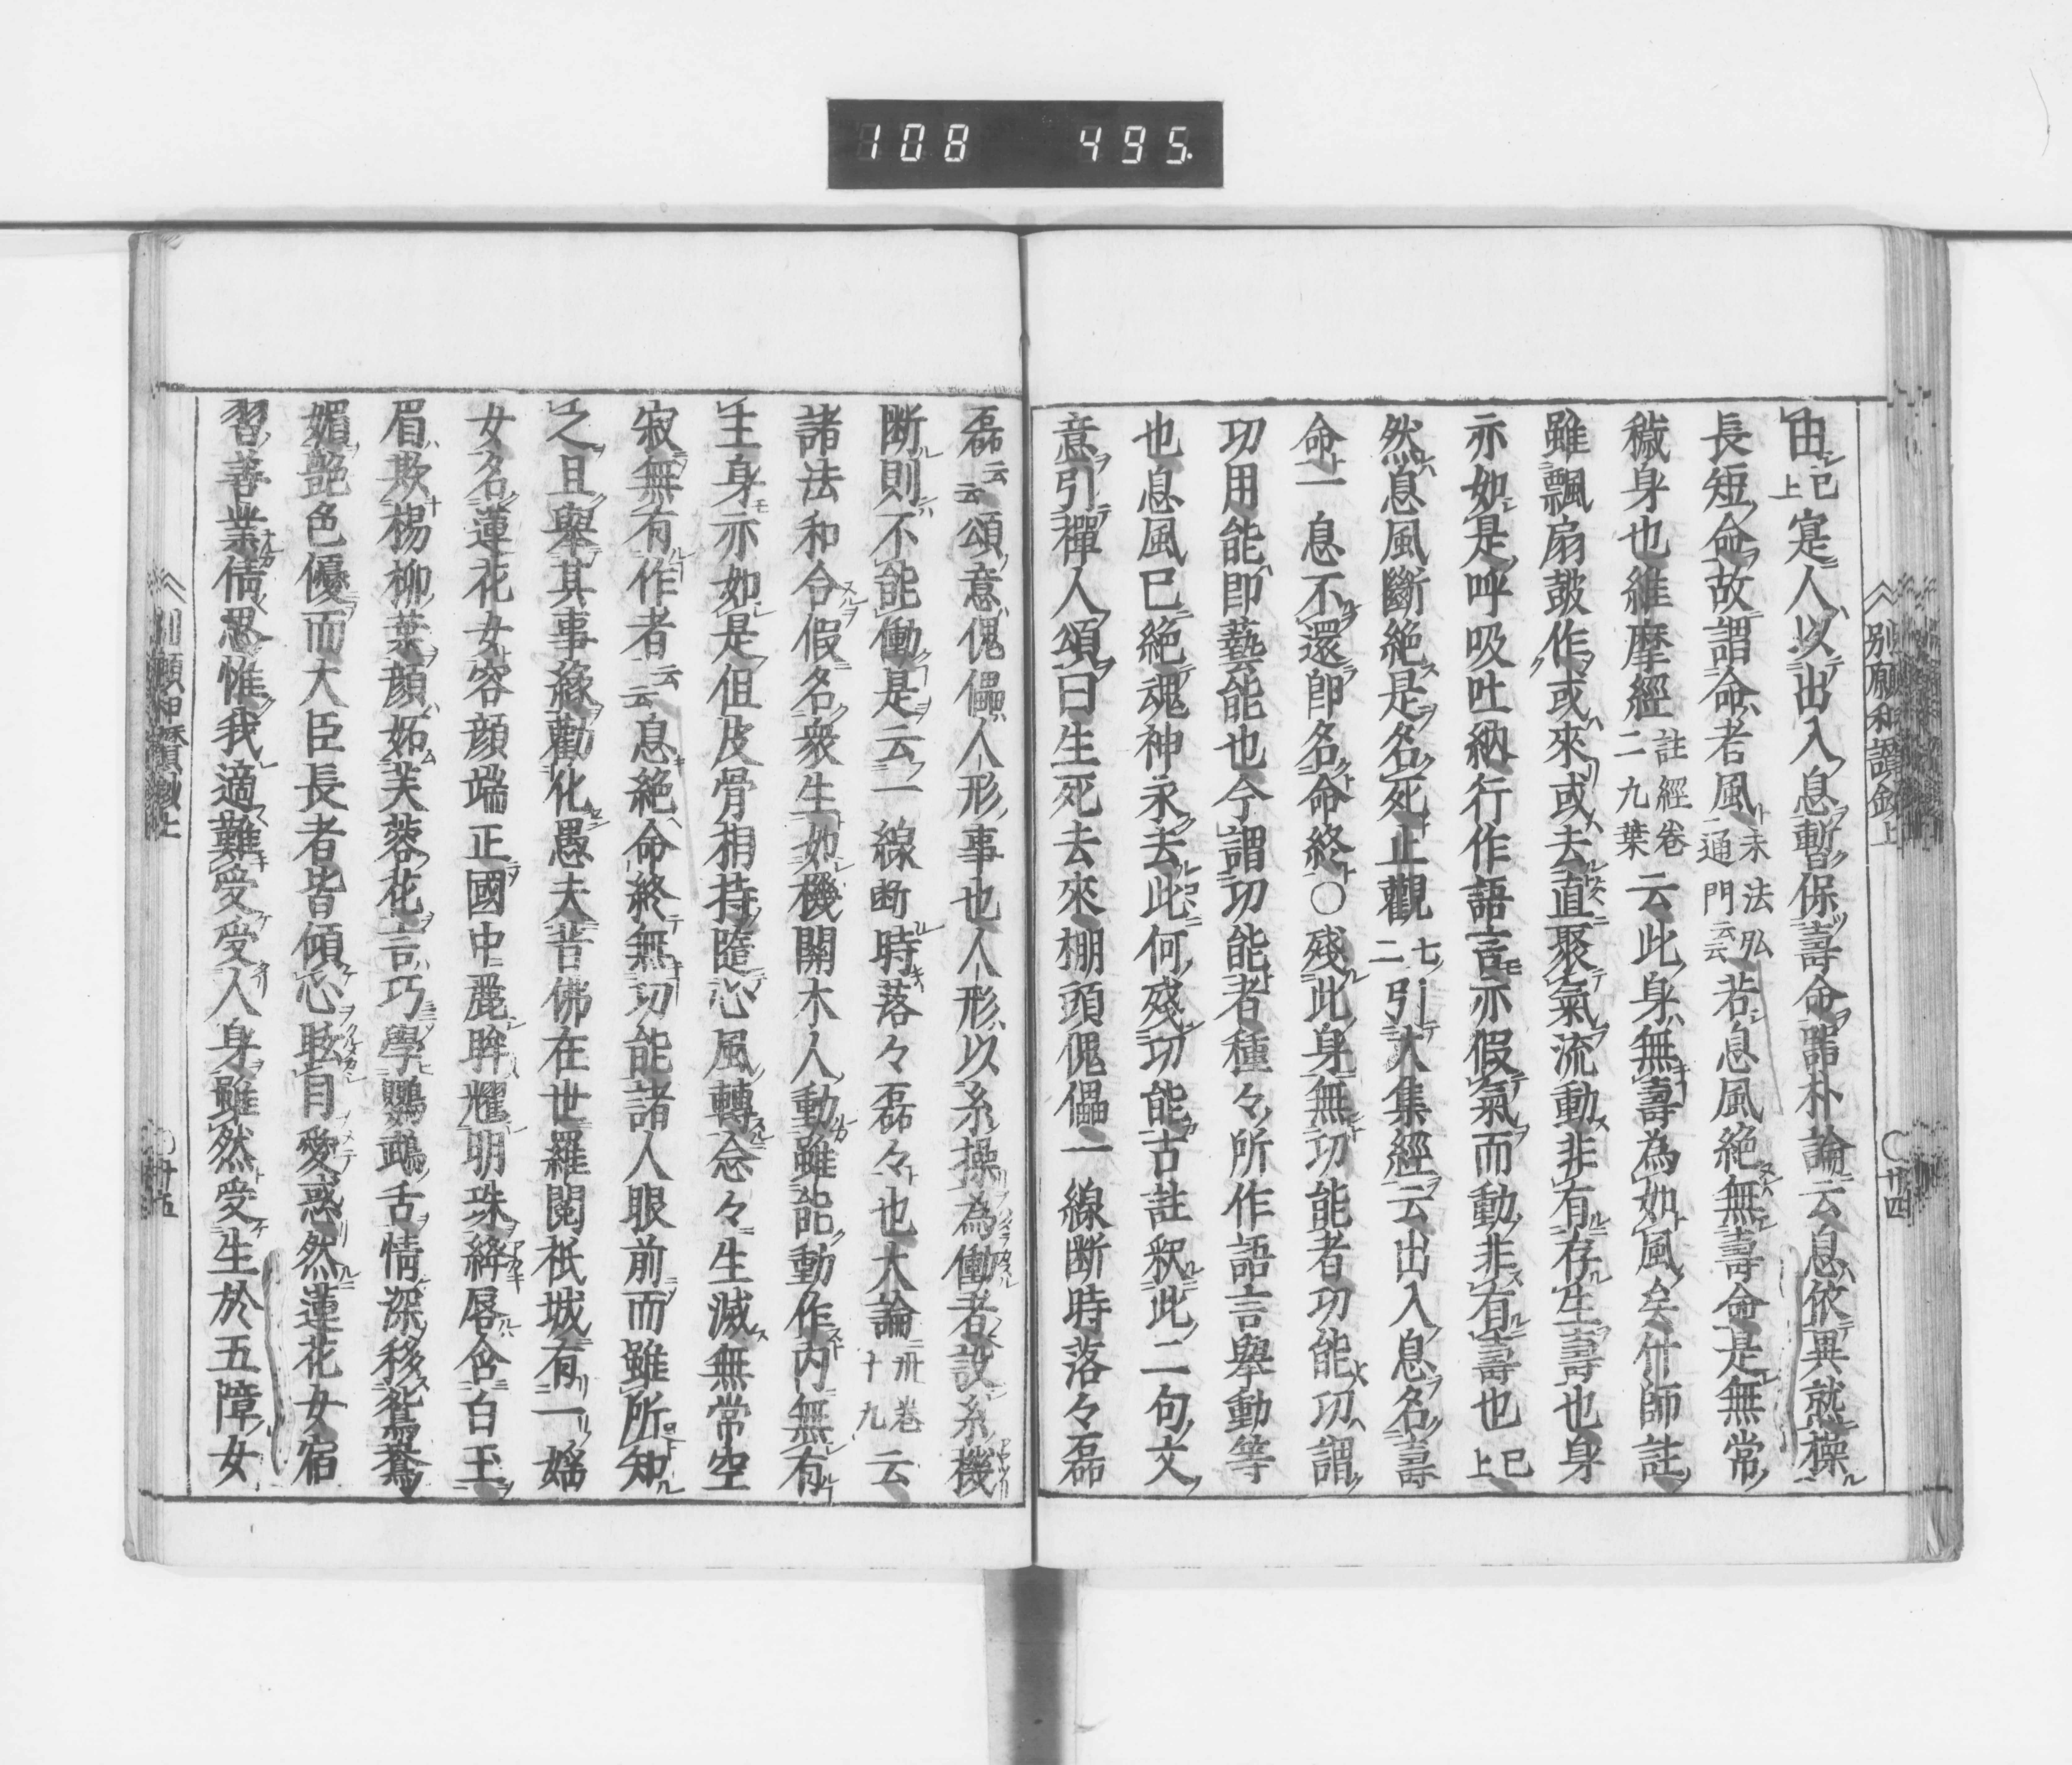 108 495
別願和讃鈔上 ○廿四
由已上寔人以出入息暫保壽命噐朴論云息依異就操
長短命故謂命者風末法弘通門云云若息風絶無壽命是無常
穢身也維摩經註經卷二九葉云此身無壽為如風矣什師註
雖飄扇皷作或來或去直聚氣流動非有存生壽也身
亦如是呼吸吐納行作語言亦假氣而動非有壽也已上
然息風斷絶是名死止觀七二引大集經云出入息名壽
命一息不還即名命終○殘此身無功能者功能功謂
功用能即藝能也今謂功能者種々所作語言舉動等
也息風已絶魂神永去此何殘功能古註釈此二句文
意引禪人頌曰生死去來棚頭傀儡一線断時落々磊
磊云云頌意傀儡人形事也人形以糸操為働者設糸機
断則不能働是云一線断時落々磊々也大論卅卷十九云
諸法和合假名衆生如機關木人動雖能動作内無有
主身亦如是但皮骨相持隨心風轉念々生滅無常空
寂無有作者云云息絶命終無功能諸人眼前而雖所知
之且舉其事縁勸化愚夫昔佛在世羅閲祇城有一婬
女名蓮花女容顔端正國中麗眸耀明珠絳唇含白玉
眉欺楊柳葉顔妬芙蓉花言巧學鸚鵡舌情深移鴛鴦
媚艶色優而大臣長者皆傾心眩目愛惑然蓮花女宿
習善業倩思惟我適難受受人身雖然受生於五障女